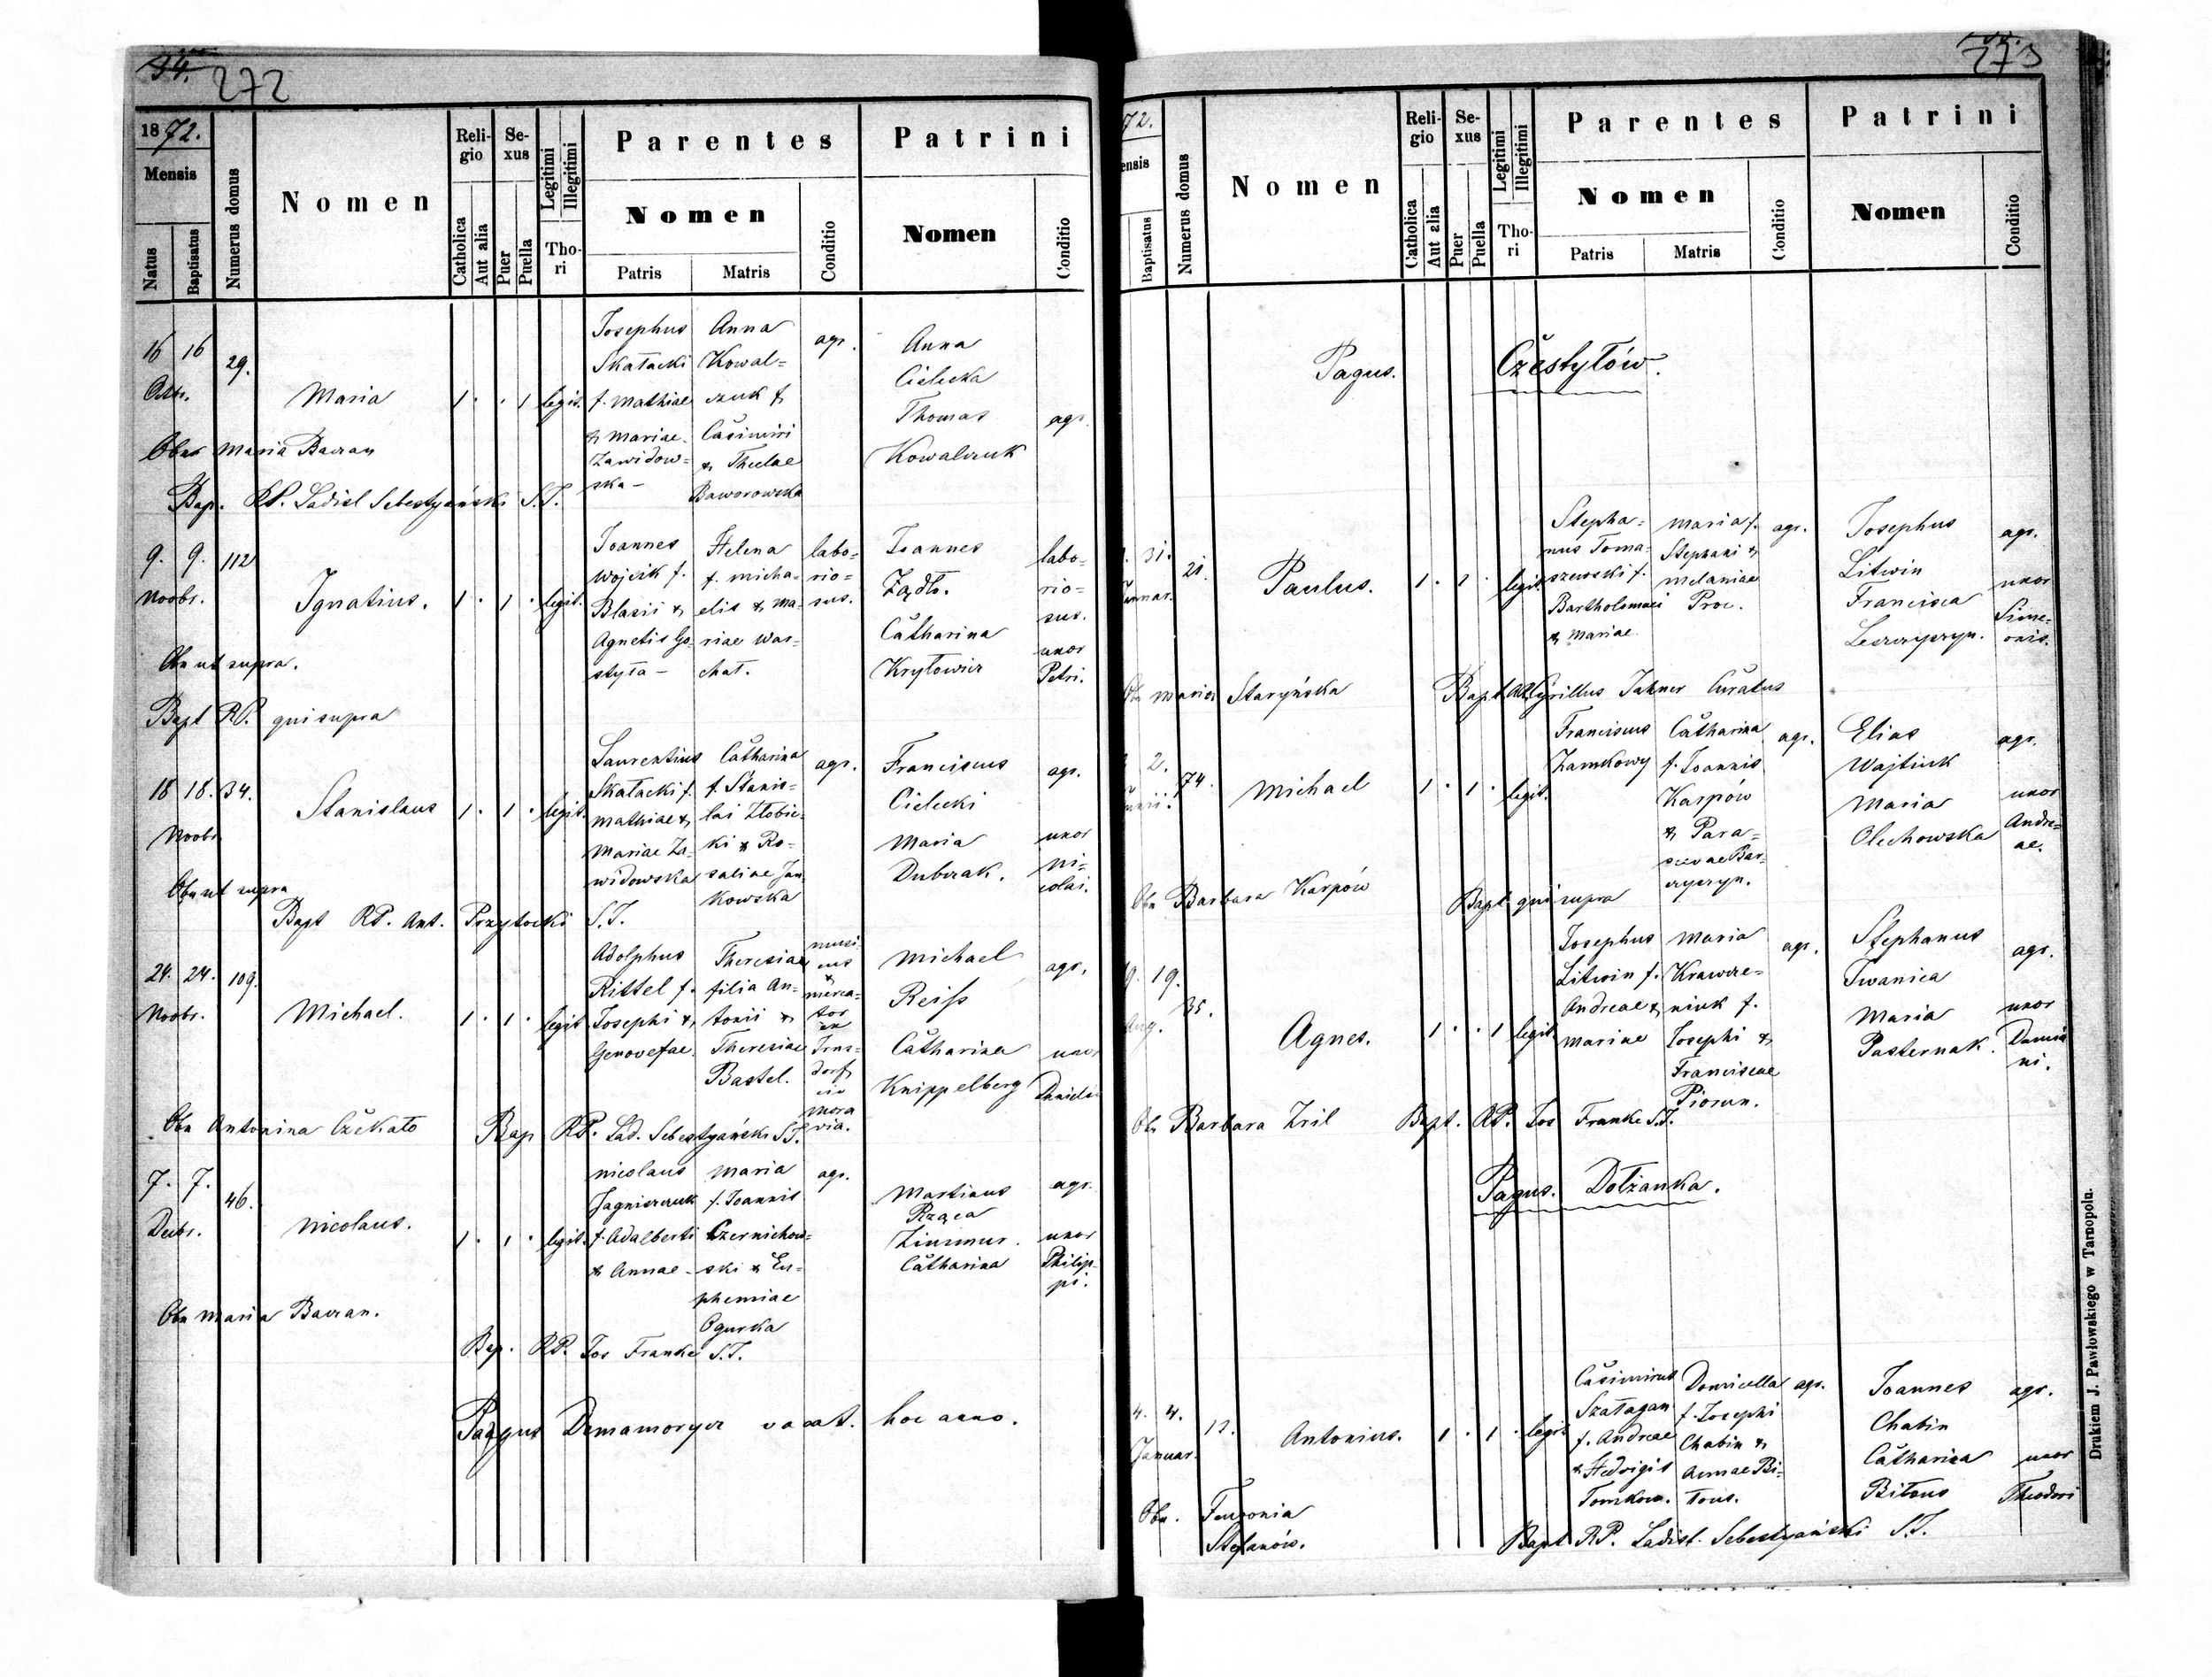 54.
272
1872.
Mensis
Natus
Baptisatus
Numerus domus
Nomen
Religio
Catholica
Aut alia
Sexus
Puer
Puella
Legitimi
Illegitimi
Thori
Parentes
Nomen
Patris
Matris
Conditio
Patrini
Nomen
Conditio
16 16 29.
Octr.
Maria
1 . . 1 legit.
Josephus
Skałacki
f. Mathiae
& Mariae
Zawidow=
ska -
Anna
Kowal=
czuk f.
Casimiri
& Theclae
Baworowska
agr.
Anna
Cielecka
Thomas
Kowalczuk
agr.
Obs. Maria Baran
Bap. RP. Ladisl Sebestyański S.J.
9. 9. 112
Novbr.
Ignatius.
1 . 1 . legit.
Joannes
Wojcik f.
Blasii &
Agnetis Go=
styła -
Helena
f. Micha=
elis & Ma=
riae War=
chat.
labo=
rio=
sus.
Joannes
Żądło.
Catharina
Kryłowicz
labo=
rio=
sus.
uxor
Petri.
Obs ut supra.
Bapt RP. qui supra
18 18. 34.
Novbr.
Stanislaus
1 . 1 . legit.
Laurentius
Skałacki f.
Mathiae &
Mariae Za=
widowska
Catharina
f. Stanis=
lai Złobic=
ki & Ro=
saliae Jan
kowska
agr.
Franciscus
Cielecki
Maria
Dubczak.
agr.
uxor
Ni=
colai.
Obs ut supra
Bapt RP. Ant. Przytocki S.J.
24. 24. 109.
Novbr.
Michael.
1 . 1 . legit
Adolphus
Rittel f.
Josephi &
Genovefae.
Theresia
filia An=
tonii &
Theresiae
Bastel.
musi
cus
&
merca=
tor
in
Irns=
dorf
in
Mora
via.
Michael
Reiss
Catharina
Knippelberg
agr.
uxor
Danielis
Obs Antonina Czekało
Bap RP. Lad. Sebestyański S.J.
7. 7. 46.
Decbr.
Nicolaus.
1 . 1 . legit.
Nicolaus
Jagniszczuk
f. Adalberti
& Annae -
Maria
f. Joannis
Czernichow=
ski & Eu=
phemiae
Ogurka
agr.
Martinus
Rząca
Zimmer.
Catharina
agr.
uxor
Philip=
pi.
Obs Maria Baran.
Bap. RP. Jos Franke S.J.
Pagus Demamorycz vacat. hoc anno.
273
72.
ensis
Baptisatus
Numerus domus
Nomen
Religio
Catholica
Aut alia
Sexus
Puer
Puella
Legitimi
Illegitimi
Thori
Parentes
Nomen
Patris
Matris
Conditio
Patrini
Nomen
Conditio
Pagus. Czestyłów.
31. 21.
Paulus.
1 . 1 . legit.
Stepha=
nus Toma=
szewski f.
Bartholomaei
& Mariae.
Maria f.
Stephani &
Melaniae
Proc.
agr.
Josephus
Litwin
Francisca
Leszczyszyn.
agr.
uxor
Sime=
onis.
Obs Maria Staryńska
Bapt Cyrillus Jahner Curatus
2. 74.
Michael
1 . 1 . legit.
Franciscus
Zamkowy
Catharina
f. Joannis
Karpów
& Para=
scevae Bar=
szczyn.
agr.
Elias
Wajtiuk
Maria
Olechowska
agr.
uxor
Andre=
ae.
Obs Barbara Karpów
Bapt qui supra
19. 19. 35.
Aug.
Agnes.
1 . . 1 legit
Josephus
Litwin f.
Andreae &
Mariae
Maria
Krawcze=
niuk f.
Josephi &
Franciscae
Piorun.
agr.
Stephanus
Iwanica
Maria
Pasternak.
agr.
uxor
Damia
ni.
Obs Barbara Zril
Bapt. RP. Jos Franke S.J.
Pagus. Dołżanka.
4. 4. 12.
Januar.
Antonius.
1 . 1 . legit
Casimirus
Szatagan
f. Andreae
& Hedvigis
Tomkow.
Domicella
f. Josephi
Chabin &
Annae Bi=
tous.
agr.
Joannes
Chabin
Catharina
Bitous
agr.
uxor
Theodori
Obs. Fewronia
Stefanów.
Bapt RP. Ladisl. Sebestyański S.J.
Drukiem J. Pawłowskiego w Tarnopolu.